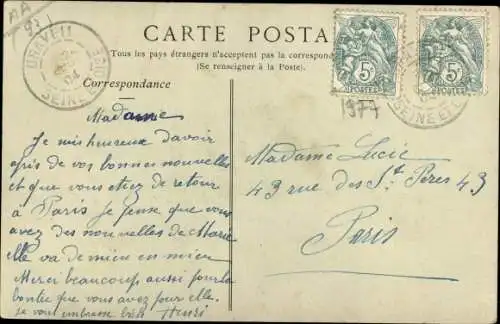 AA
93
DRAVEIL
04
SEINE ET OISE
CARTE POSTA
Tous les pays étrangers n'acceptent pas la correspond
(Se renseigner à la Poste).
Correspondance
5c
POSTES
5c
POSTES
SEINE ET O
1977
Madame
Je mis heureux d'avoir
pris de vos bonnes nouvelles
et que vous etiez de retour
à Paris je pense que vous
avez des nouvelles de Marie
elle va de mieu en mieu
Merci beaucoup aussi pour la
bontée que vous avez pour elle.
je vous embrasse bien Henri
Madame Lucie
43 rue des Sts Peres 43
Paris